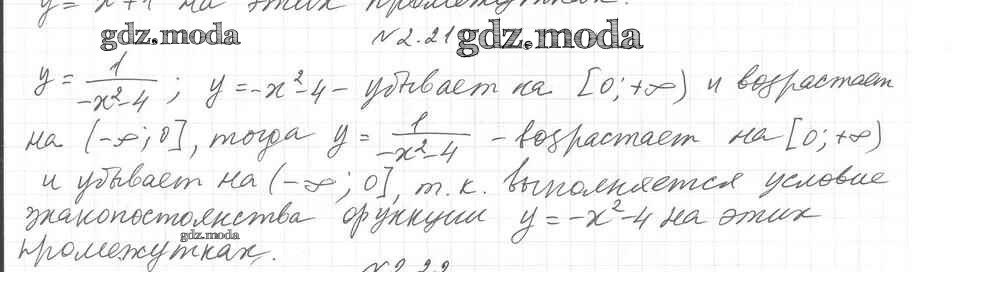 y = x+1 на этих промежутках.
gdz.moda №2.21 gdz.moda
y = 1/(-x²-4) ; y = -x²-4 - убывает на [0; +∞) и возрастает
на (-∞; 0], тогда y = 1/(-x²-4) - возрастает на [0; +∞)
и убывает на (-∞; 0], т.к. выполняется условие
знакопостоянства функции y = -x²-4 на этих
gdz.moda
промежутках.
№2.22